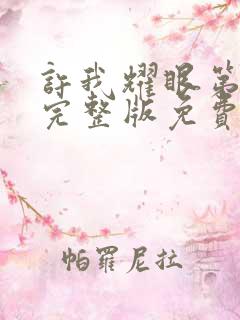 許我耀眼第
完整版免費
帕羅尼拉